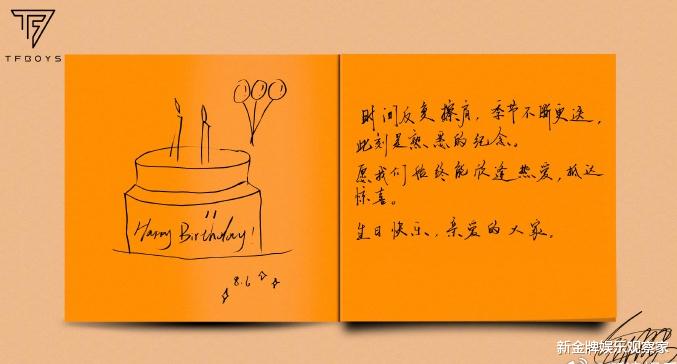 TFBOYS
Happy Birthday!
8.6
时间反复擦肩，季节不断更迭，
此刻是熟悉的纪念。
愿我们始终能欣逢热爱，抵达
惊喜。
生日快乐，亲爱的大家。
新金牌娱乐观察家